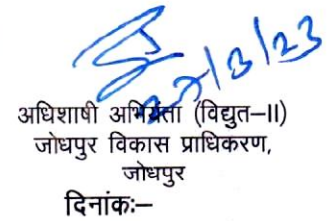 27/3/23
अधिशाषी अभियंता (विद्युत–II)
जोधपुर विकास प्राधिकरण,
जोधपुर
दिनांकः–